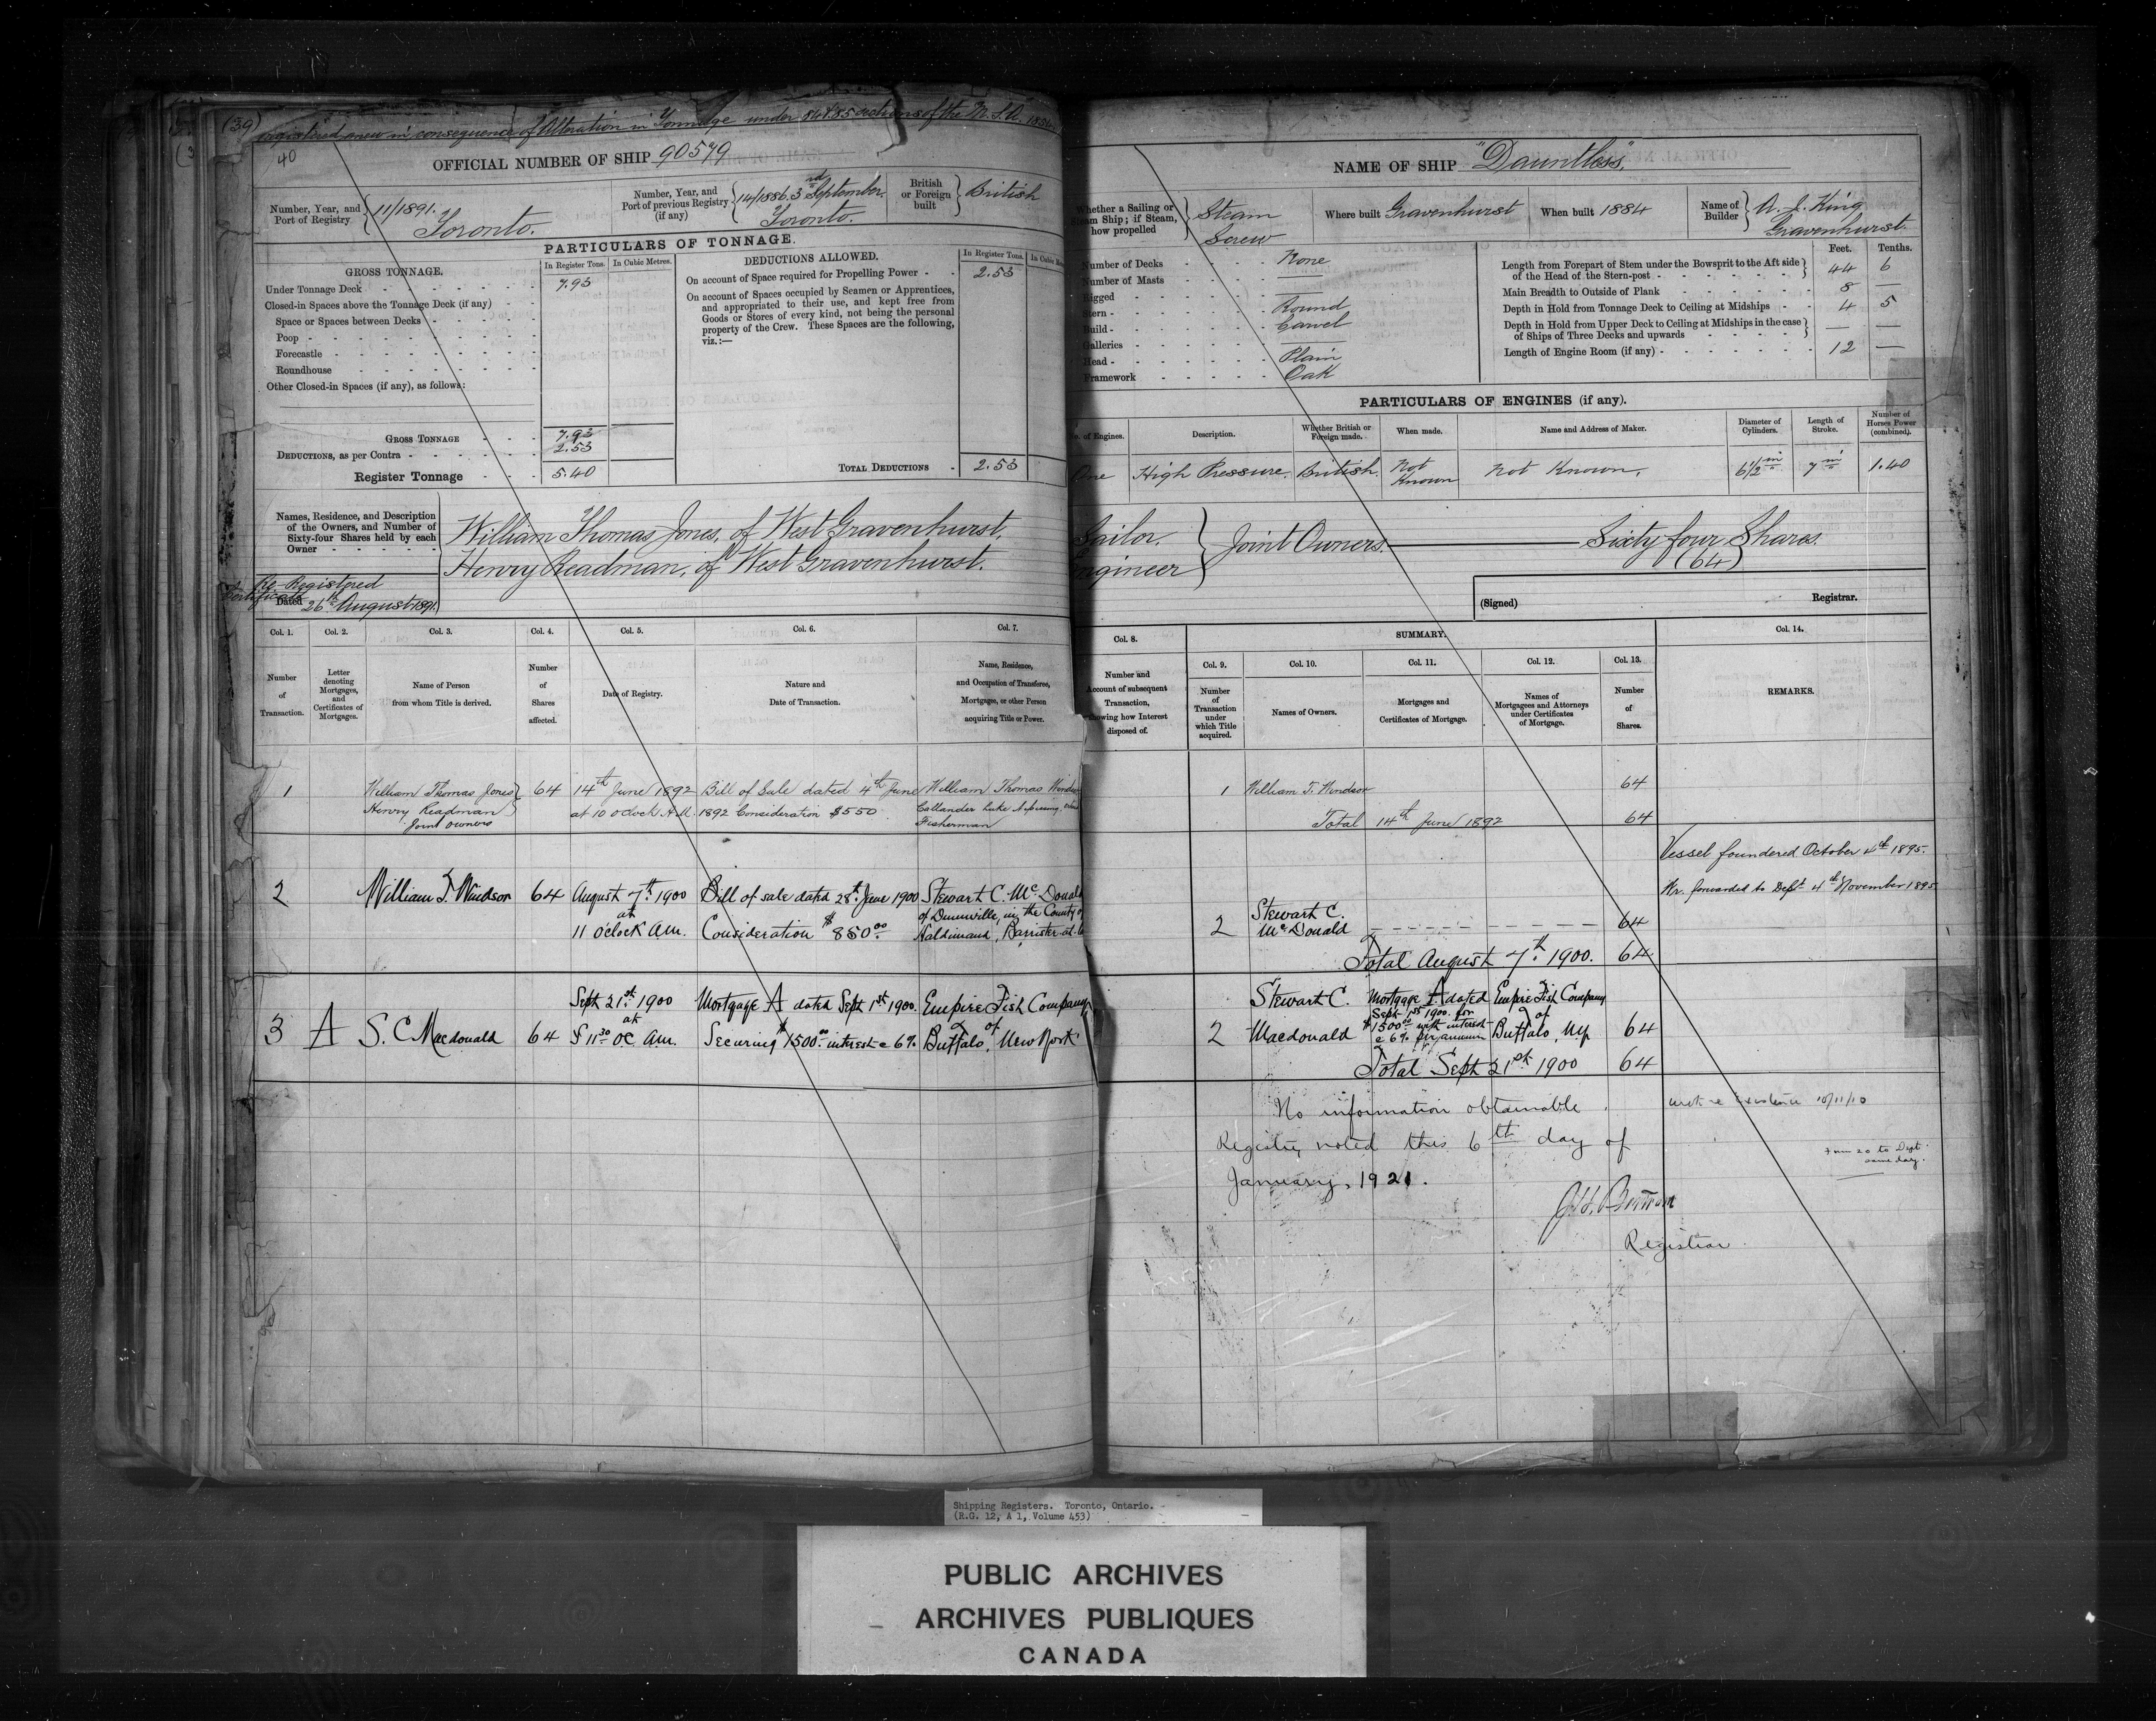 (39)
registered anew in consequence of Alteration in Tonnage under 84 & 85 sections of the M.S.A. 1854
40
OFFICIAL NUMBER OF SHIP 90579
Number, Year, and Port of Registry } 11/1891. Toronto.
Number, Year, and Port of previous Registry (if any) { 14/1886. 3rd September. Toronto.
British or Foreign built } British
PARTICULARS OF TONNAGE.
GROSS TONNAGE.
In Register Tons. In Cubic Metres.
Under Tonnage Deck - 7.93
Closed-in Spaces above the Tonnage Deck (if any)
Space or Spaces between Decks
Poop
Forecastle
Roundhouse
Other Closed-in Spaces (if any), as follows:
GROSS TONNAGE 7.93
DEDUCTIONS, as per Contra 2.53
Register Tonnage 5.40
DEDUCTIONS ALLOWED.
In Register Tons.
On account of Space required for Propelling Power - 2.53
On account of Spaces occupied by Seamen or Apprentices,
and appropriated to their use, and kept free from
Goods or Stores of every kind, not being the personal
property of the Crew. These Spaces are the following,
viz.:—
TOTAL DEDUCTIONS 2.53
Names, Residence, and Description
of the Owners, and Number of
Sixty-four Shares held by each
Owner
William Thomas Jones, of West Gravenhurst,
Henry Readman, of West Gravenhurst.
Re-Registered
Certificate
Dated 26th August 1891.
Col. 1. Col. 2. Col. 3. Col. 4. Col. 5. Col. 6. Col. 7.
Number of Transaction.
Letter denoting Mortgages, and Certificates of Mortgages.
Name of Person from whom Title is derived.
Number of Shares affected.
Date of Registry.
Nature and Date of Transaction.
Name, Residence, and Occupation of Transferee, Mortgagee, or other Person acquiring Title or Power.
1 William Thomas Jones } 64 14th June 1892 Bill of Sale dated 4th June William Thomas Windsor
Henry Readman at 10 o'clock A.M. 1892 Consideration $550 Callander Lake Nipissing
Joint owners Fisherman
2 William T. Windsor 64 August 7th 1900 Bill of sale dated 28th June 1900 Stewart C. McDonald
at of Dunnville, in the County of
11 o'clock am. Consideration $850.00 Haldimand, Barrister-at-
Sept 21st 1900 Mortgage A dated Sept 1st 1900. Empire Fish Company
at of
3 A S. C Macdonald 64 11.30 oc am. Securing $1500.00 interest @ 6% Buffalo, New York
NAME OF SHIP "Dauntless,"
Whether a Sailing or Steam Ship; if Steam, how propelled } Steam Screw
Where built Gravenhurst
When built 1884
Name of Builder } A. J. King Gravenhurst.
Number of Decks None
Number of Masts —
Rigged —
Stern Round
Build Carvel
Galleries —
Head Plain
Framework Oak
Feet. Tenths.
Length from Forepart of Stem under the Bowsprit to the Aft side
of the Head of the Stern-post 44 6
Main Breadth to Outside of Plank 8 —
Depth in Hold from Tonnage Deck to Ceiling at Midships 4 5
Depth in Hold from Upper Deck to Ceiling at Midships in the case
of Ships of Three Decks and upwards — —
Length of Engine Room (if any) 12 —
PARTICULARS OF ENGINES (if any).
No. of Engines. Description. Whether British or Foreign made. When made. Name and Address of Maker. Diameter of Cylinders. Length of Stroke. Number of Horses Power (combined).
One High Pressure. British. Not Known Not Known. 6½ in 7 in 1.40
Sailor.
Engineer } Joint Owners. Sixty four Shares.
(64)
(Signed) Registrar.
Col. 8. SUMMARY. Col. 14.
Col. 9. Col. 10. Col. 11. Col. 12. Col. 13.
Number and Account of subsequent Transaction, showing how Interest disposed of.
Number of Transaction under which Title acquired.
Names of Owners.
Mortgages and Certificates of Mortgage.
Names of Mortgagees and Attorneys under Certificates of Mortgage.
Number of Shares.
REMARKS.
1 William T. Windsor 64
Total 14th June 1892 64
Vessel foundered October 4th 1895.
Wr. forwarded to Dept 4th November 1895.
2 Stewart C. McDonald 64
Total August 7th 1900. 64
Stewart C. Mortgage A dated Empire Fish Company
Sept 1st 1900 for of
2 Macdonald $1500.00 with interest Buffalo, N.Y. 64
@ 6% per annum
Total Sept 21st 1900 64
No information obtainable.
Registry noted this 6th day of
January, 1921.
Registrar.
10/11/10
to Dept
same day.
Shipping Registers. Toronto, Ontario.
(R.G. 12, A 1, Volume 453)
PUBLIC ARCHIVES
ARCHIVES PUBLIQUES
CANADA